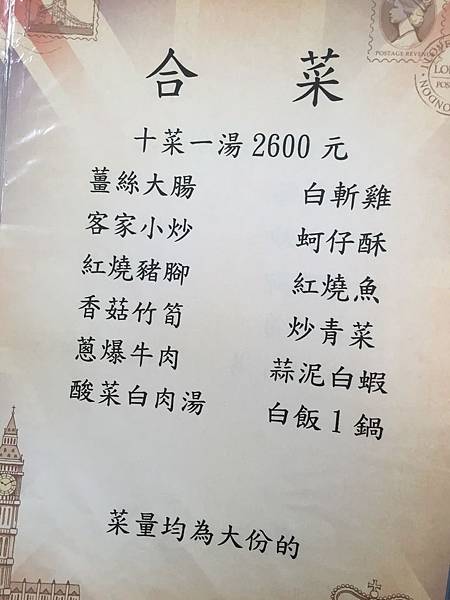 合 菜
十菜一湯 2600 元
薑絲大腸 白斬雞
客家小炒 蚵仔酥
紅燒豬腳 紅燒魚
香菇竹筍 炒青菜
蔥爆牛肉 蒜泥白蝦
酸菜白肉湯 白飯 1 鍋
菜量均為大份的
POSTAGE REVENUE
LONDON